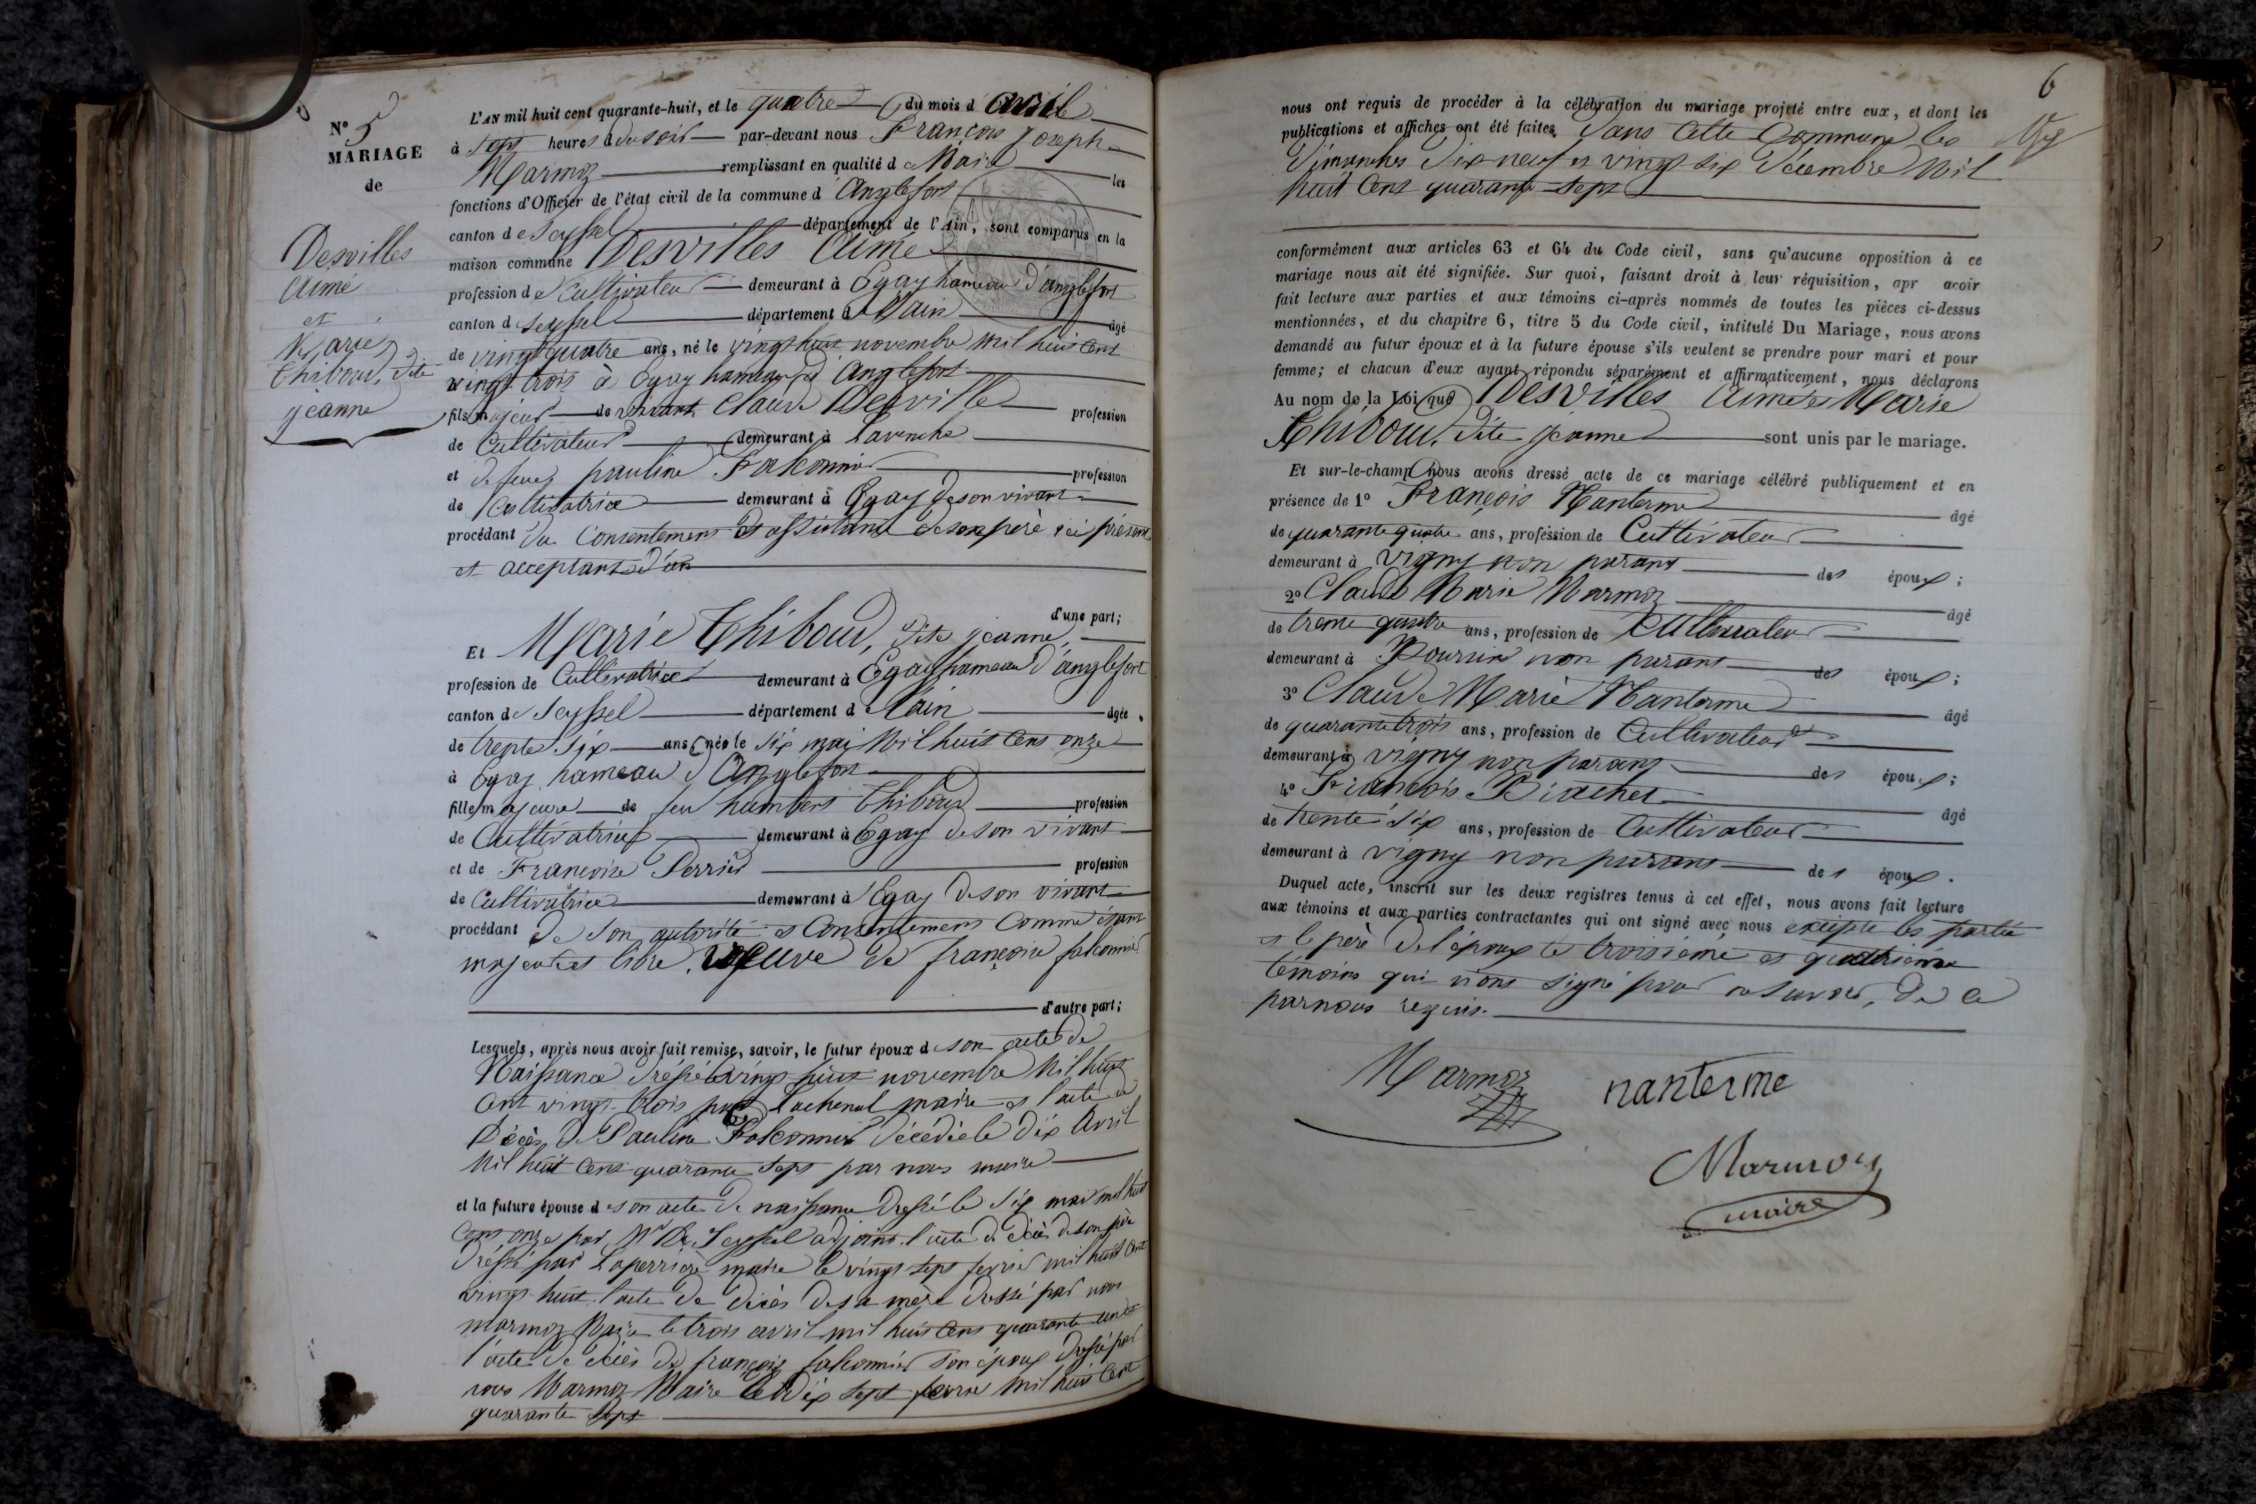 N° 5
MARIAGE
de
Desvilles
Aimé
et
Marie
Thiboud, dite
jeanne
L'AN mil huit cent quarante-huit, et le quatre du mois d'avril
à sept heures du soir par-devant nous François Joseph
Marmoz remplissant en qualité de Maire les
fonctions d'Officier de l'état civil de la commune d'Anglefort
canton de Seyssel département de l'Ain, sont comparus en la
maison commune Desvilles Aimé
profession de Cultivateur demeurant à Egay hameau d'anglefort
canton d Seyssel département de l'ain âgé
de vingt quatre ans, né le vingt huit novembre mil huit cent
vingt-trois à Egay hameau d'Anglefort
fils majeur de vivant Claude Desville profession
de Cultivateur demeurant à Lavenche
et de feue pauline Falconnier profession
de Cultivatrice demeurant à Egay de son vivant
procédant du Consentement et assistance de son père ici présent
et acceptant d'un
d'une part;
Et Marie Thiboud, dite jeanne,
profession de Cultivatrice demeurant à Egay hameau d'anglefort
canton de Seyssel département de l'ain âgée
de trente six ans, née le six mai Mil huit cent onze
à Egay hameau d'Anglefort
fille majeure de feu humbert Thiboud profession
de Cultivatrice demeurant à Egay de son vivant
et de Françoise Perrier profession
de Cultivatrice demeurant à Egay de son vivant
procédant de son autorité et Consentement Comme étant
majeure et libre, veuve de françois falconnier
d'autre part;
Lesquels, après nous avoir fait remise, savoir, le futur époux de son acte de
Naissance dressé le vingt huit novembre Mil huit
Cent vingt-trois par Lachenal maire et l'acte de
Décès de Pauline Falconnier décédée le dix Avril
Mil huit Cent quarante sept par nous maire
et la future épouse de son acte de naissance dressé le six mai mil huit
Cent onze par Mr De Seyssel adjoint. l'acte de décès de son père
dressé par Laperrière maire le vingt sept fevrier mil huit Cent
vingt huit. l'acte de décès de sa mère dressé par nous
marmoz Maire le trois avril mil huit Cent quarante un et
l'acte de décès de françois falconnier son époux dressé par
nous Marmoz Maire le dix sept fevrier mil huit Cent
quarante sept
6
nous ont requis de procéder à la célébration du mariage projeté entre eux, et dont les
publications et affiches ont été faites dans Cette Commune les
Dimanches Dix-neuf et vingt-six décembre Mil
huit Cent quarante-sept
conformément aux articles 63 et 64 du Code civil, sans qu'aucune opposition à ce
mariage nous ait été signifiée. Sur quoi, faisant droit à leur réquisition, apr avoir
fait lecture aux parties et aux témoins ci-après nommés de toutes les pièces ci-dessus
mentionnées, et du chapitre 6, titre 5 du Code civil, intitulé Du Mariage, nous avons
demandé au futur époux et à la future épouse s'ils veulent se prendre pour mari et pour
femme; et chacun d'eux ayant répondu séparément et affirmativement, nous déclarons
Au nom de la Loi que Desvilles Aimé et Marie
Thiboud, dite jeanne sont unis par le mariage.
Et sur-le-champ nous avons dressé acte de ce mariage célébré publiquement et en
présence de 1° François Nanterme âgé
de quarante quatre ans, profession de Cultivateur
demeurant à vigny non parant des époux;
2° Claude Marie Marmoz âgé
de trente quatre ans, profession de Cultivateur
demeurant à Boursin non parant des époux;
3° Claude Marie Nanterme âgé
de quarante trois ans, profession de Cultivateur
demeurant à vigny non parant des époux;
4° François Birachet âgé
de trente six ans, profession de Cultivateur
demeurant à vigny non parant des époux.
Duquel acte, inscrit sur les deux registres tenus à cet effet, nous avons fait lecture
aux témoins et aux parties contractantes qui ont signé avec nous excepté les parties
et le père de l'époux le troisième et quatrième
témoins qui n'ont signé pour ne savoir, de ce
par nous requis.
Marmoz
nanterme
Marmoz
maire